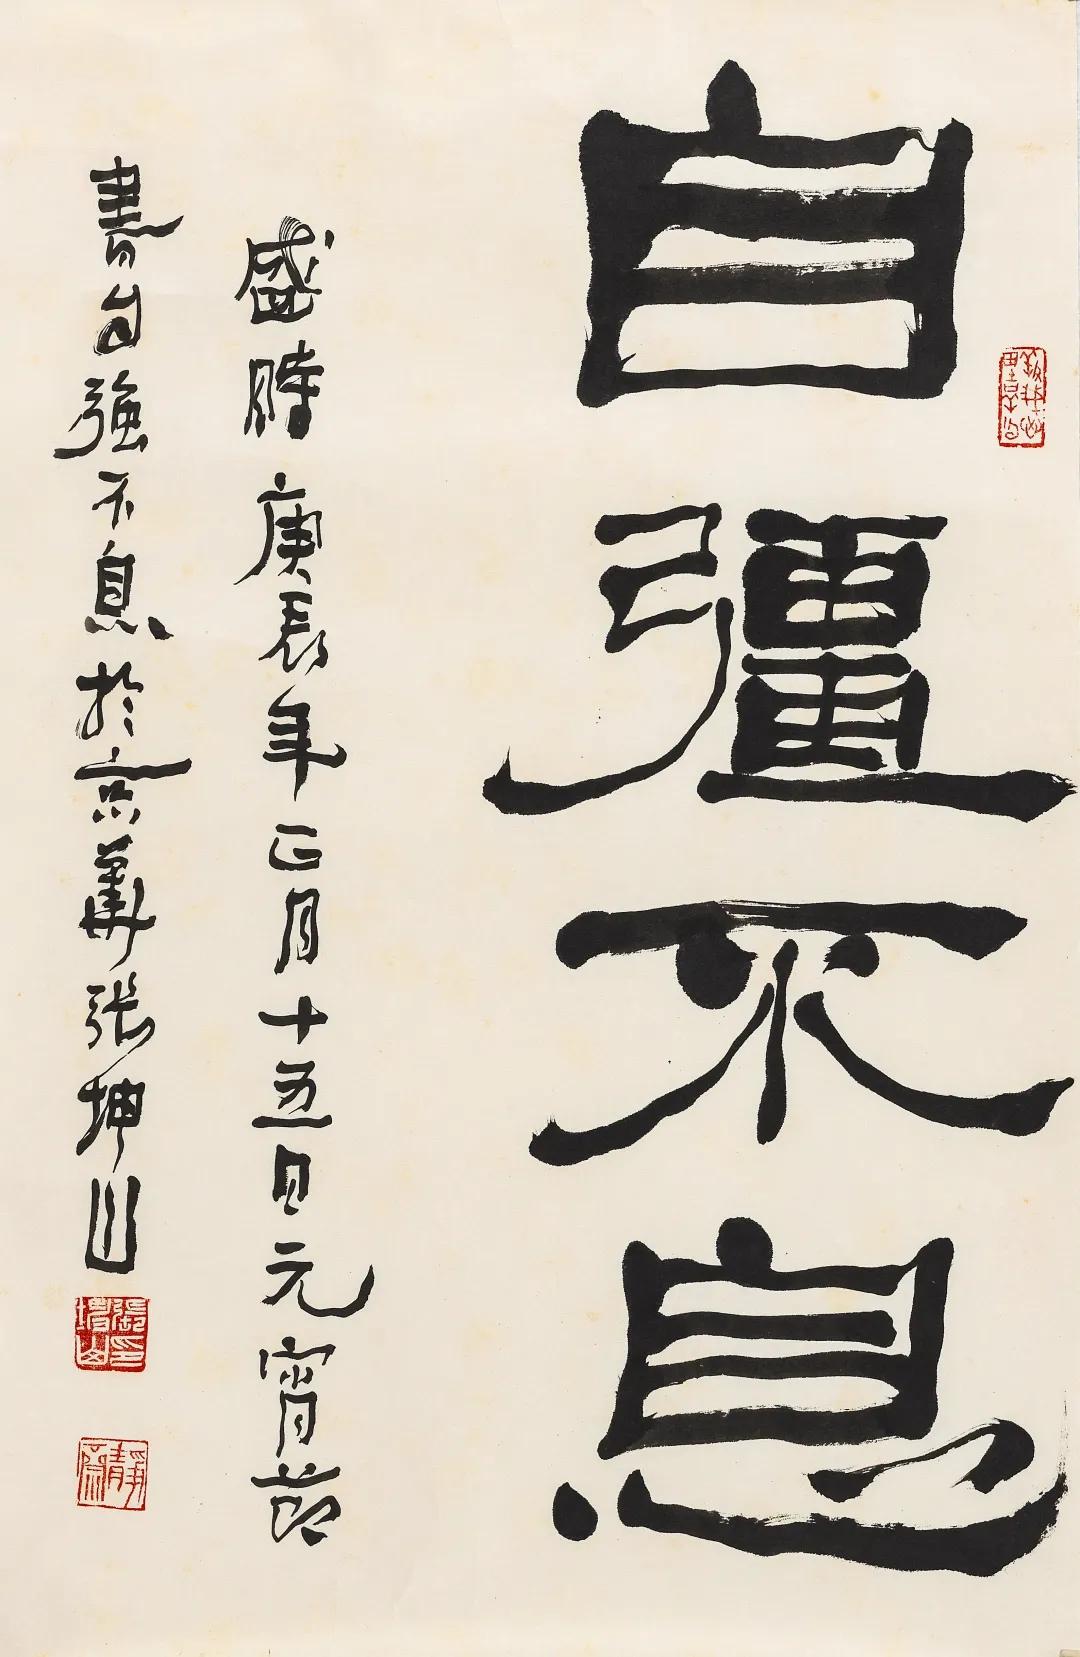 自彊不息
盛時庚辰年正月十五日元宵節
書自強不息於京華張坤山
張坤山印
靜齋